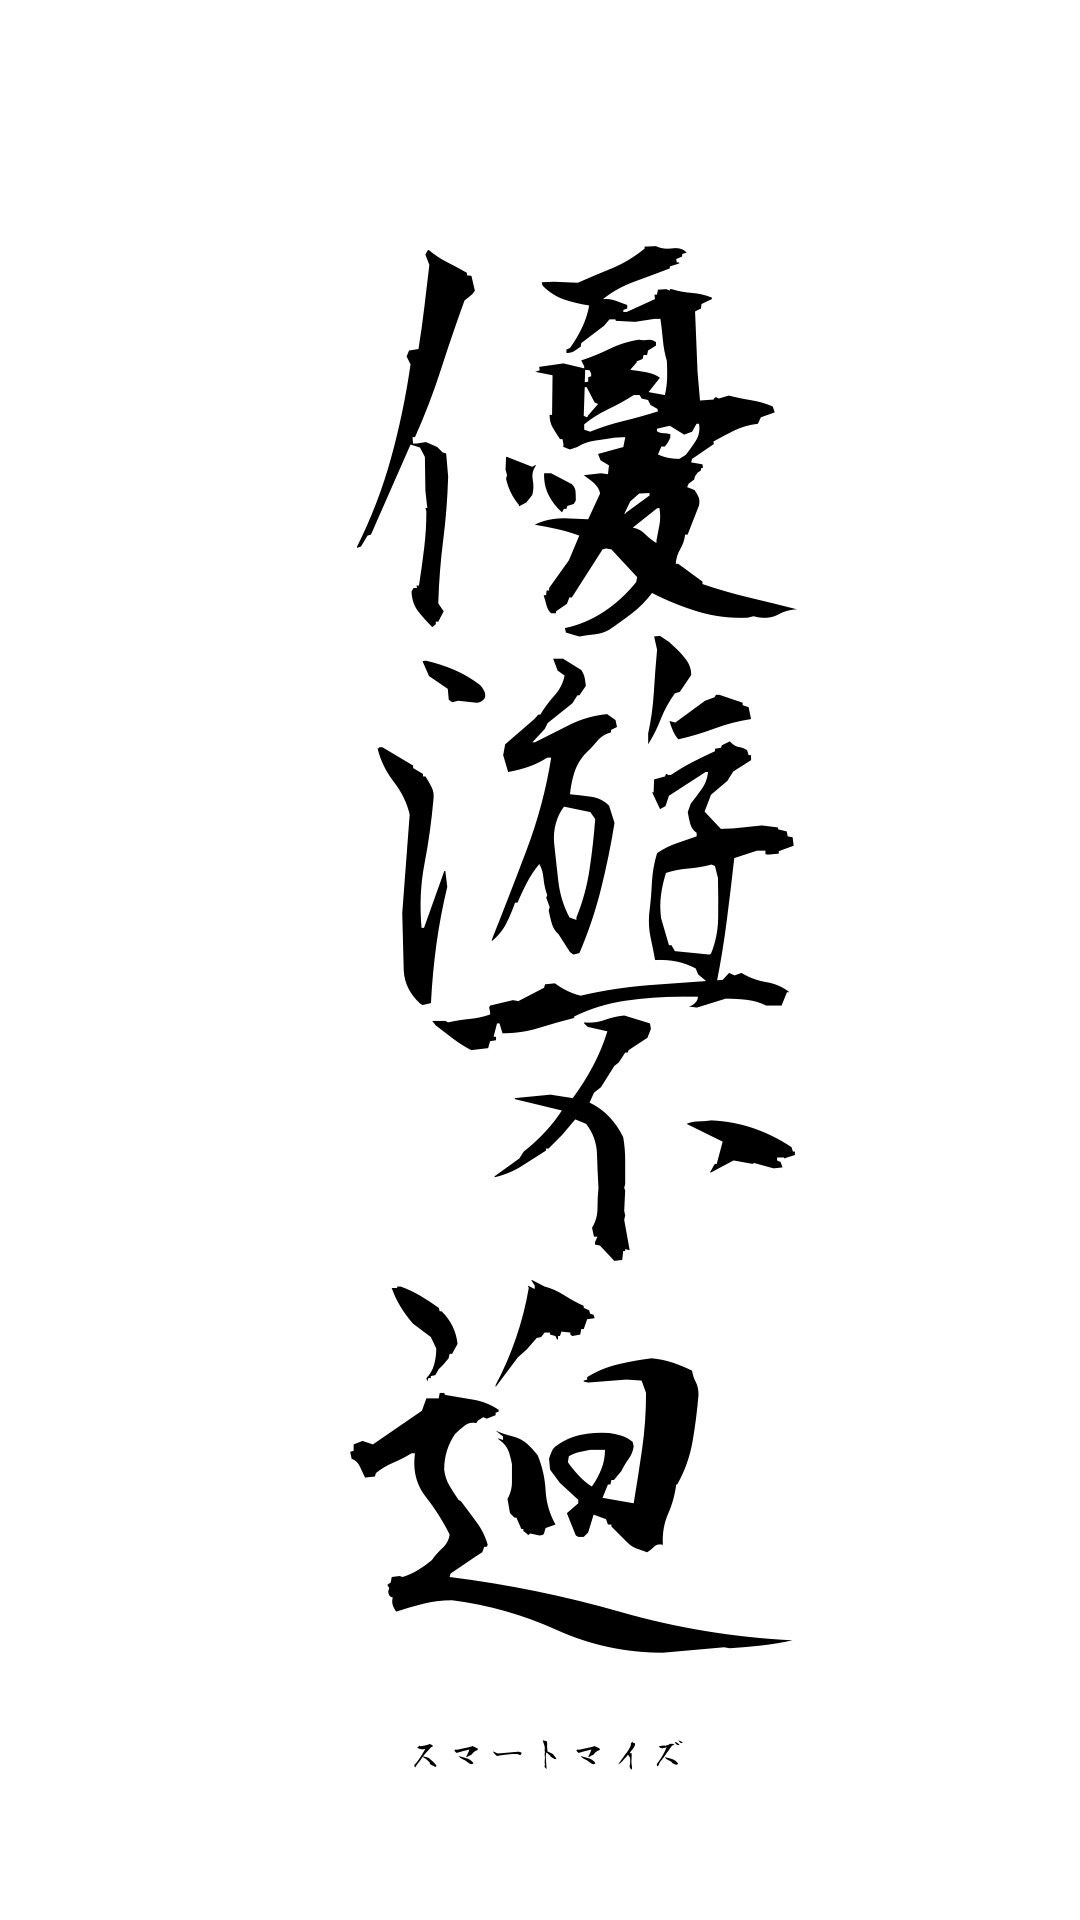 優游不迫
スマートマイズ